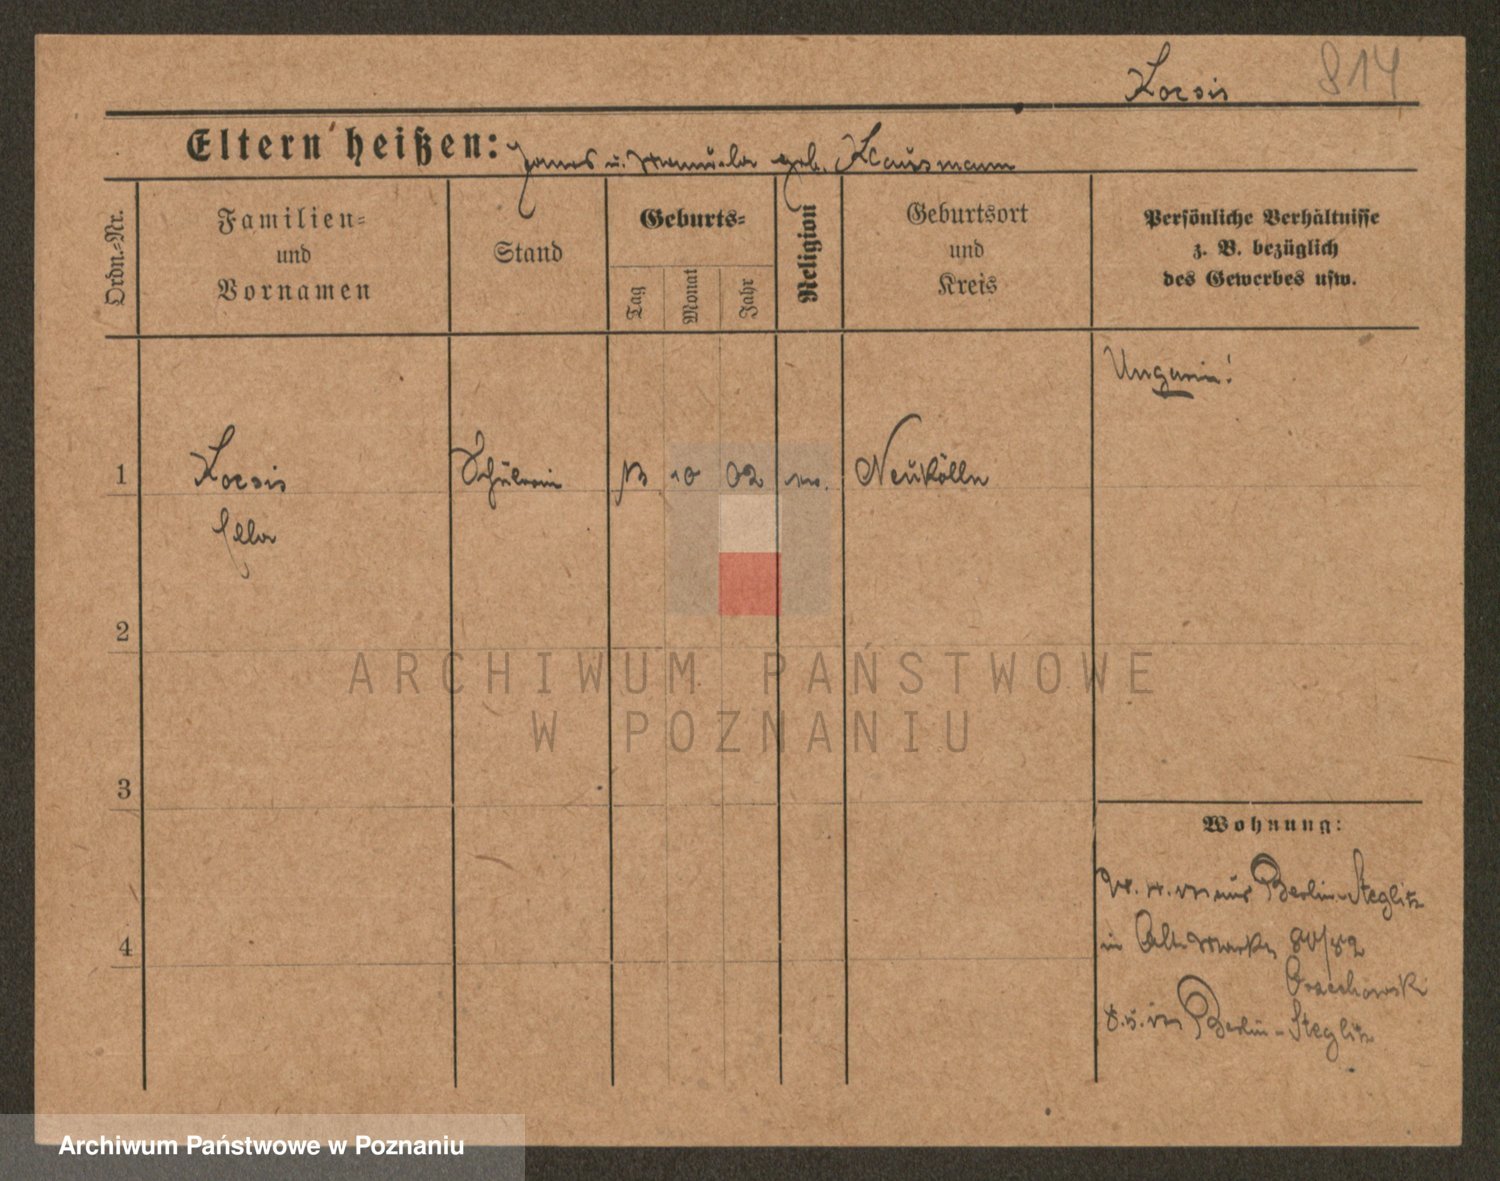 Kocsis 814
Eltern heißen: u. geb. Klausmann
Ordn.-Nr.
Familien=
und
Vornamen
Stand
Geburts=
Tag
Monat
Jahr
Religion
Geburtsort
und
Kreis
Persönliche Verhältnisse
z. B. bezüglich
des Gewerbes usw.
Ungarin!
1 Kocsis Schülerin 10 02 Neukölln
Ella
2
3
4
Wohnung:
aus Berlin-Steglitz
in Alter Markt 80/82
Orzechowski
in Berlin-Steglitz
ARCHIWUM PAŃSTWOWE
W POZNANIU
Archiwum Państwowe w Poznaniu